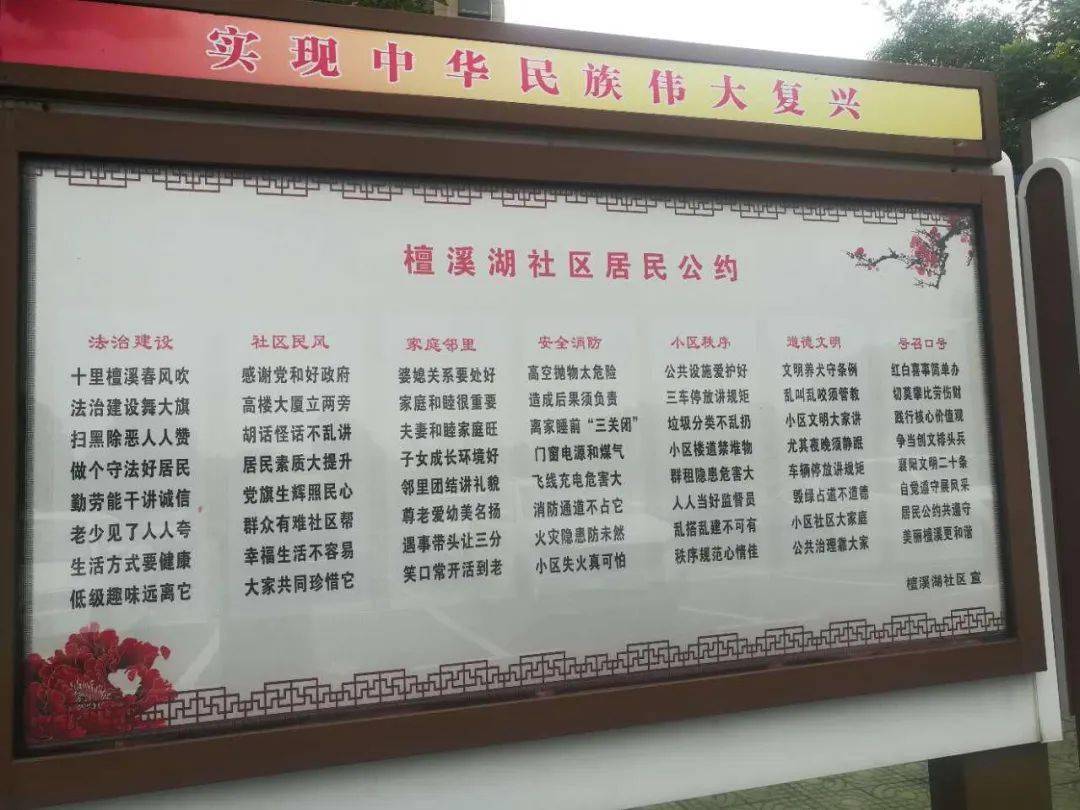 实现中华民族伟大复兴
檀溪湖社区居民公约
法治建设
十里檀溪春风吹
法治建设舞大旗
扫黑除恶人人赞
做个守法好居民
勤劳能干讲诚信
老少见了人人夸
生活方式要健康
低级趣味远离它
社区民风
感谢党和好政府
高楼大厦立两旁
胡话怪话不乱讲
居民素质大提升
党旗生辉照民心
群众有难社区帮
幸福生活不容易
大家共同珍惜它
家庭邻里
婆媳关系要处好
家庭和睦很重要
夫妻和睦家庭旺
子女成长环境好
邻里团结讲礼貌
尊老爱幼美名扬
遇事带头让三分
笑口常开活到老
安全消防
高空抛物太危险
造成后果须负责
离家睡前“三关闭”
门窗电源和煤气
飞线充电危害大
消防通道不占它
火灾隐患防未然
小区失火真可怕
小区秩序
公共设施爱护好
三车停放讲规矩
垃圾分类不乱扔
小区楼道禁堆物
群租隐患危害大
人人当好监督员
乱搭乱建不可有
秩序规范心情佳
道德文明
文明养犬守条例
乱叫乱咬须管教
小区文明大家讲
尤其夜晚须静跟
车辆停放讲规矩
毁绿占道不道德
小区社区大家庭
公共治理靠大家
号召口号
红白喜事简单办
切莫攀比劳伤财
践行核心价值观
争当创文排头兵
襄阳文明二十条
自觉遵守展风采
居民公约共遵守
美丽檀溪更和谐
檀溪湖社区 宣